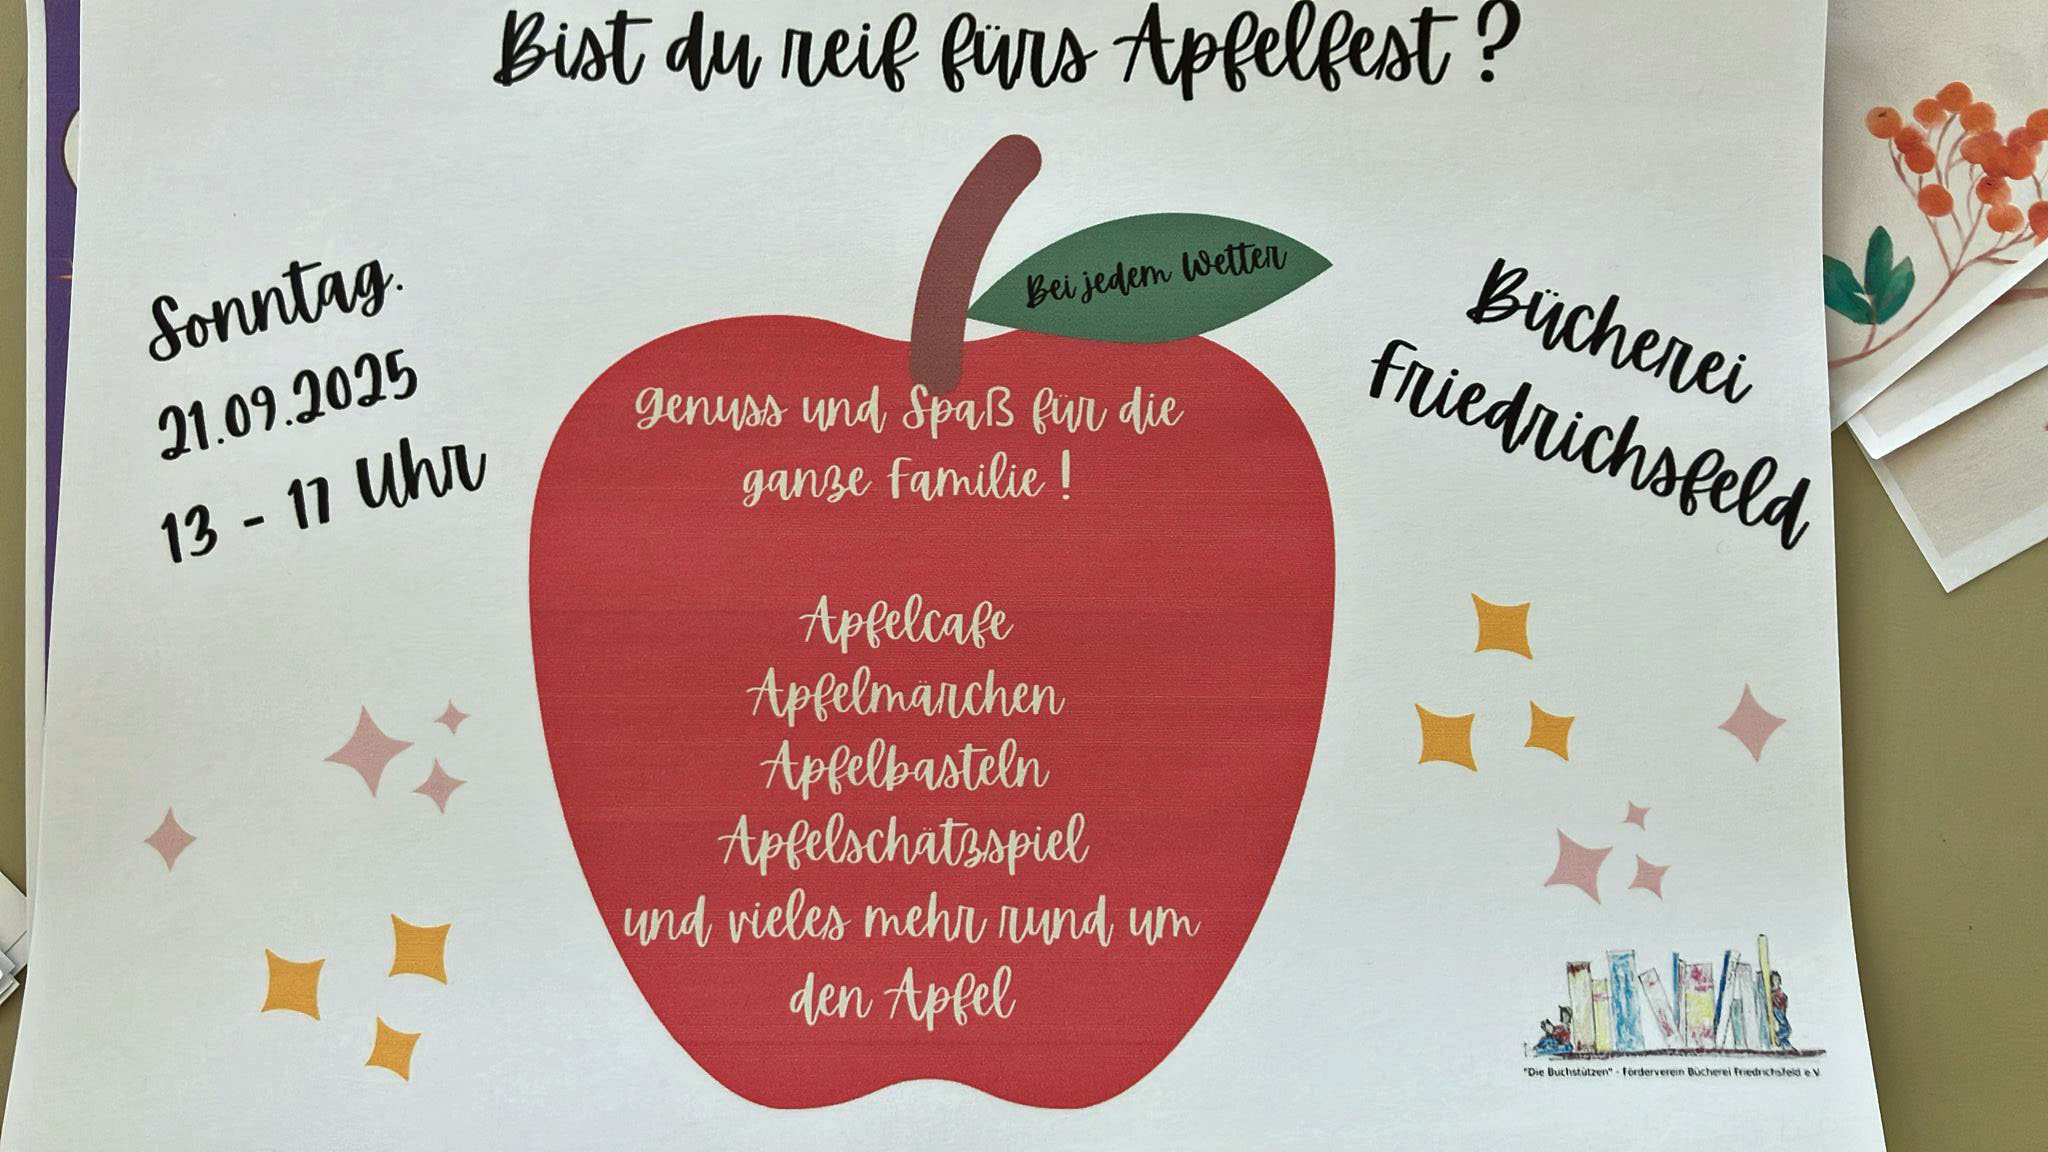 Bist du reif fürs Apfelfest ?
Bei jedem Wetter
Sonntag.
21.09.2025
13 - 17 Uhr
Bücherei
Friedrichsfeld
Genuss und Spaß für die
ganze Familie !
Apfelcafe
Apfelmärchen
Apfelbasteln
Apfelschätzspiel
und vieles mehr rund um
den Apfel
"Die Buchstützen" - Förderverein Bücherei Friedrichsfeld e.V.